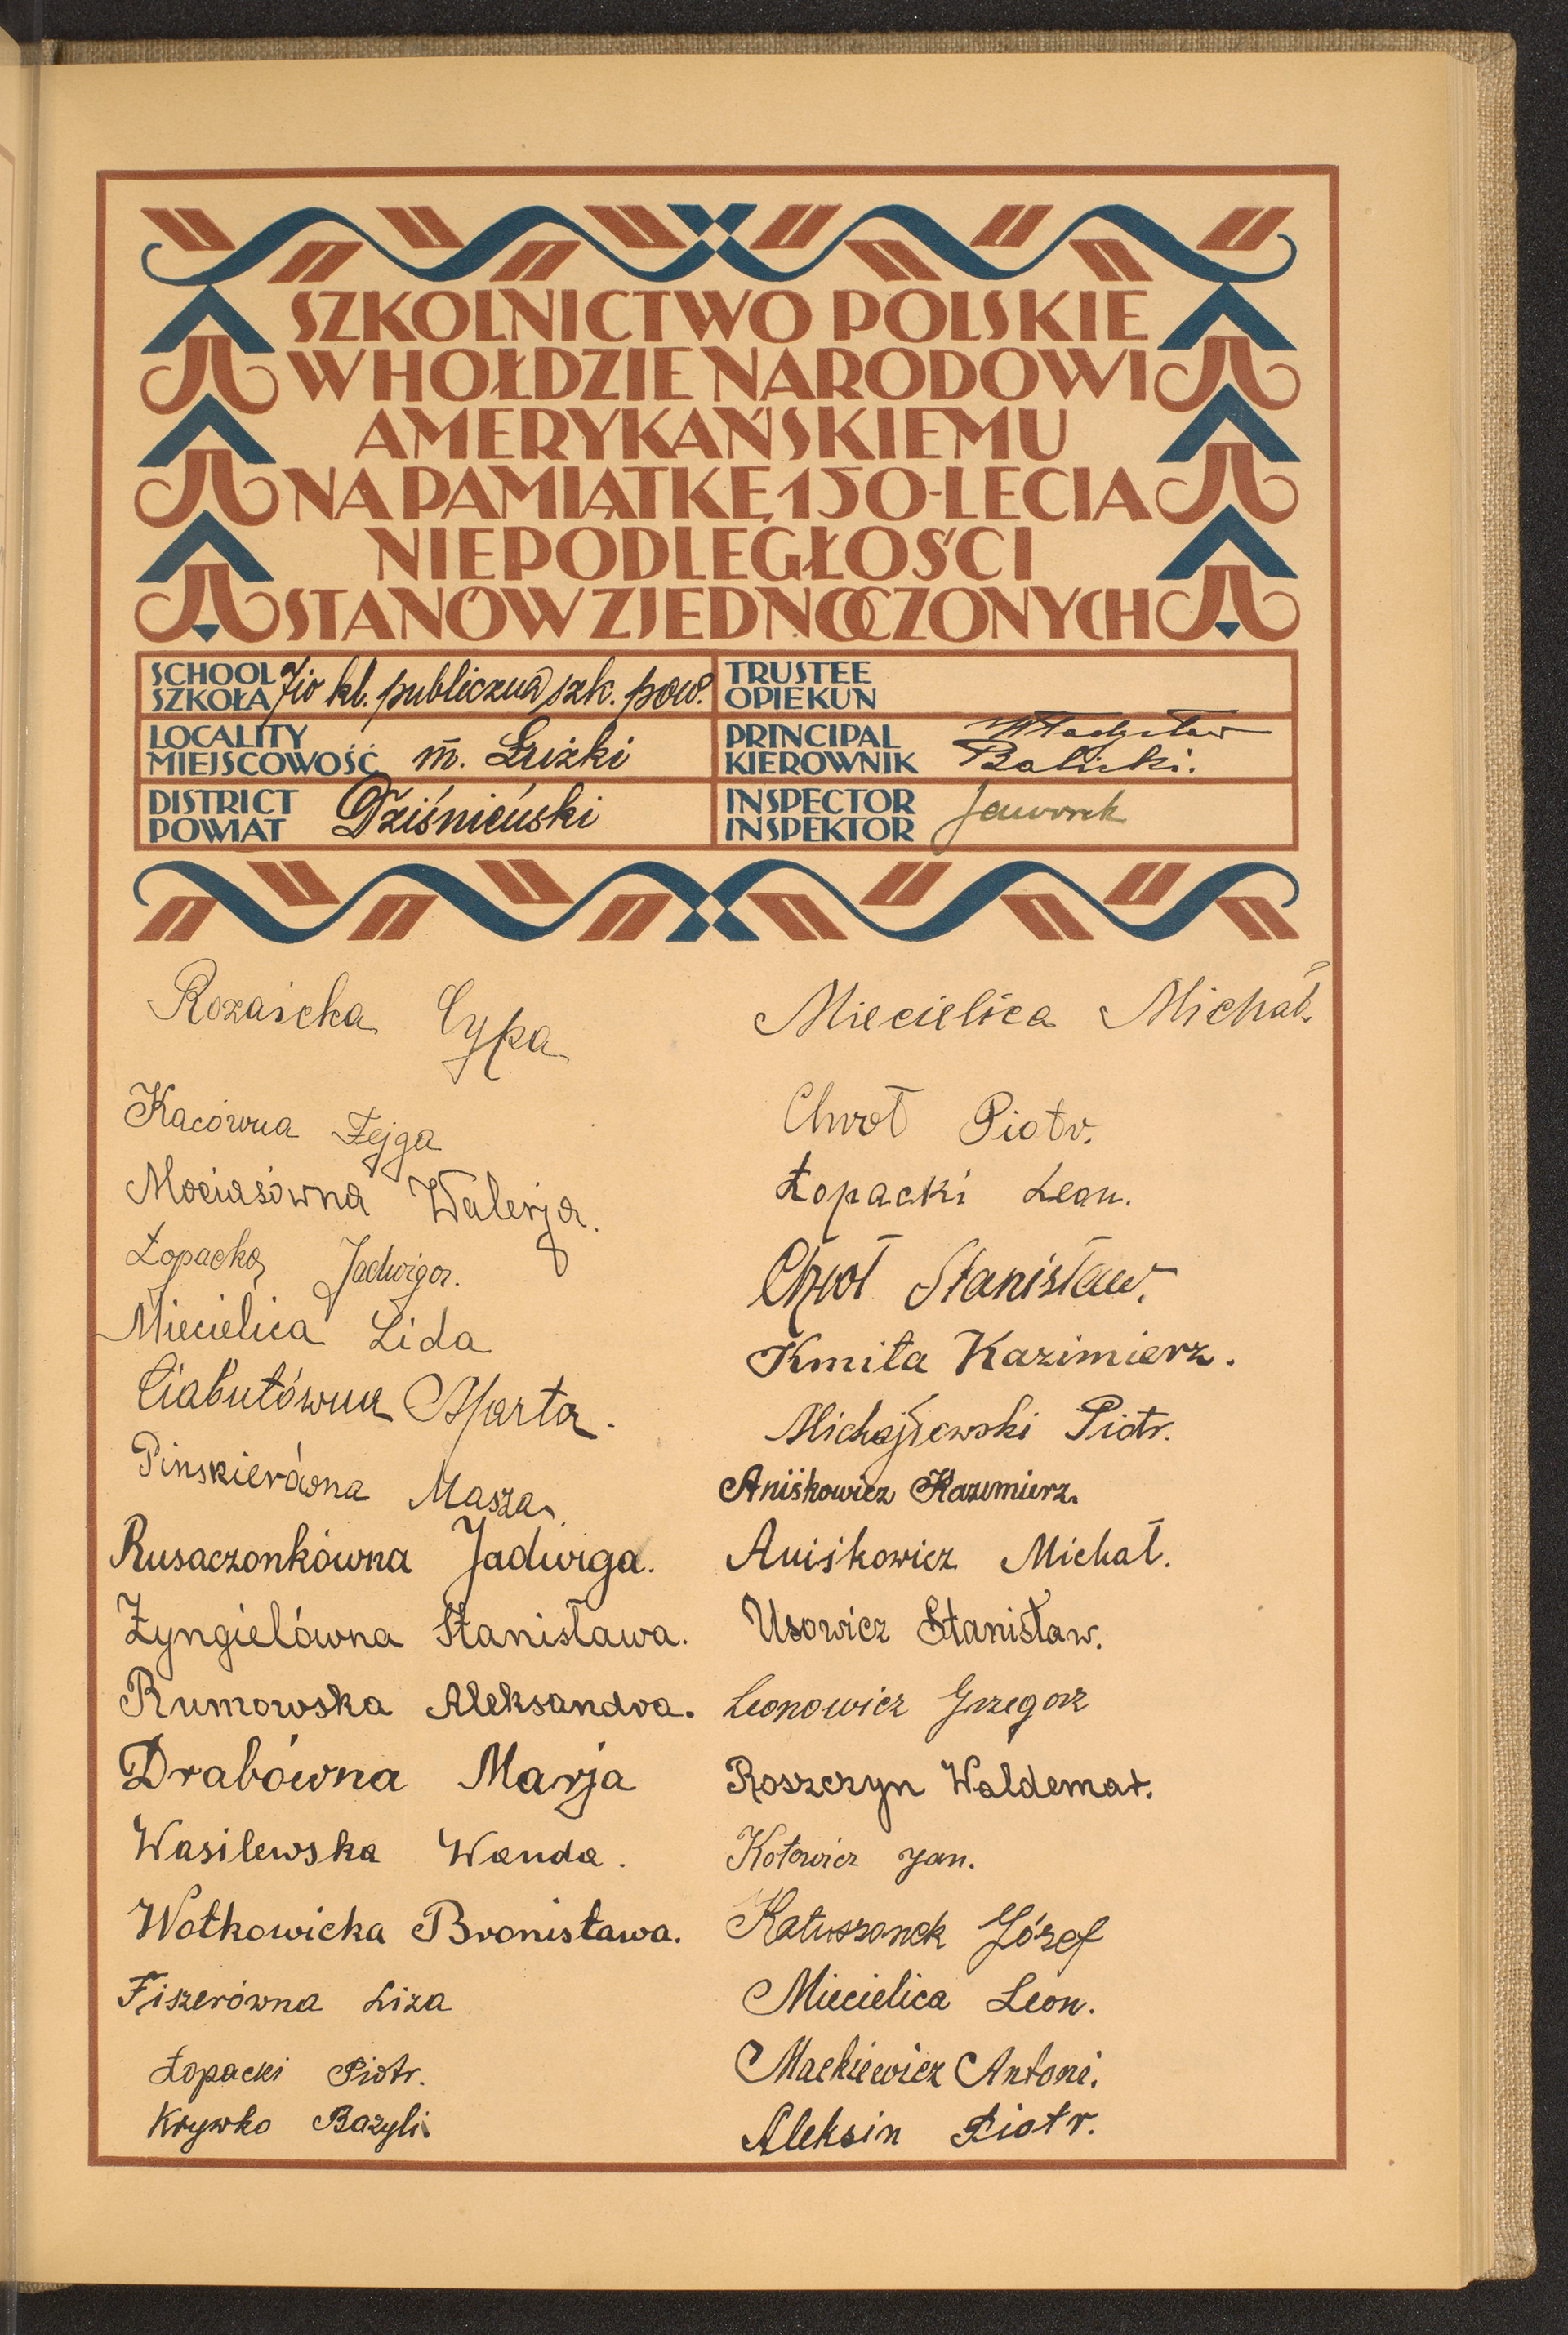 SZKOLNICTWO POLSKIE
W HOŁDZIE NARODOWI
AMERYKAŃSKIEMU
NA PAMIĄTKĘ 150-LECIA
NIEPODLEGŁOŚCI
STANÓW ZJEDNOCZONYCH
SCHOOL
SZKOŁA 7io kl. publiczna szk. pow.
TRUSTEE
OPIEKUN
LOCALITY
MIEJSCOWOŚĆ m. Łużki
PRINCIPAL
KIEROWNIK Władysław
Balicki.
DISTRICT
POWIAT Dziśnieński
INSPECTOR
INSPEKTOR Jaworek
Cypa
Kacówna Fejga
Mociasówna Walerja.
Łopacka Jadwiga.
Miecielica Lida
Ciabutówna Marta.
Pinskierówna Masza.
Rusaczonkówna Jadwiga.
Zyngielówna Stanisława.
Rumowska Aleksandra.
Drabówna Marja
Wasilewska Wanda.
Wołkowicka Bronisława.
Fiszerówna Liza
Łopacki Piotr.
Krywko Bazyli.
Miecielica Michał.
Chwoł Piotr.
Łopacki Leon.
Chwoł Stanisław.
Kmita Kazimierz.
Michajłowski Piotr.
Aniśkowicz Kazimierz.
Aniśkowicz Michał.
Usowicz Stanisław.
Leonowicz Grzegorz
Roszczyn Waldemar.
Kotowicz Jan.
Katuszonek Józef
Miecielica Leon.
Mackiewicz Antoni.
Aleksin Piotr.